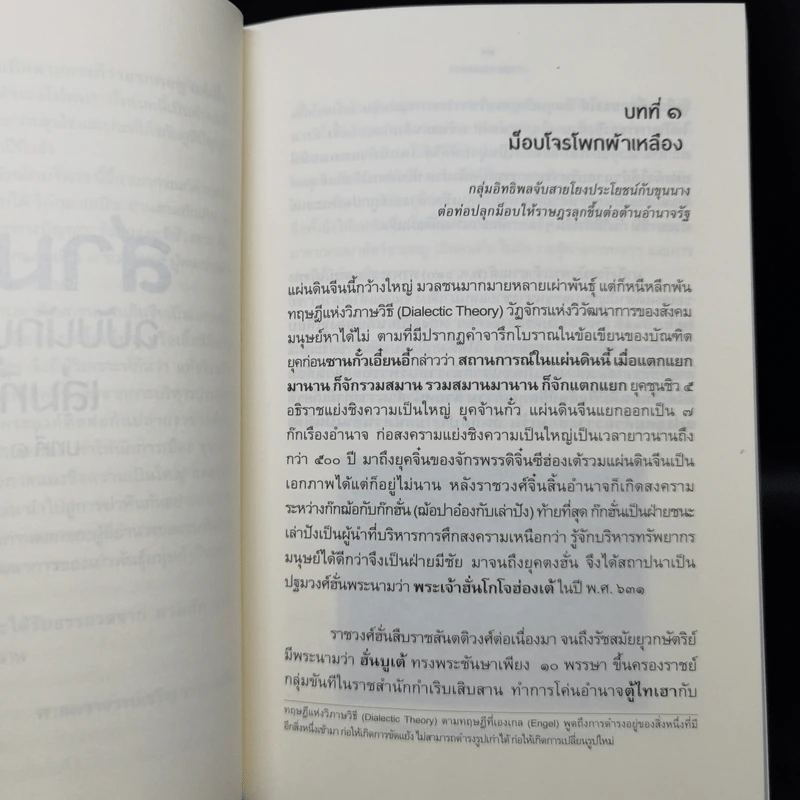 สาม
ฉบับนัก
เล่มที่
บทที่ ๑
บทที่ ๑
ม็อบโจรโพกผ้าเหลือง
กลุ่มอิทธิพลจับสายโยงประโยชน์กับขุนนาง
ต่อท่อปลุกม็อบให้ราษฎรลุกขึ้นต่อต้านอำนาจรัฐ
แผ่นดินจีนนี้กว้างใหญ่ มวลชนมากมายหลายเผ่าพันธุ์ แต่ก็หนีหลีกพ้น
ทฤษฎีแห่งวิภาษวิธี (Dialectic Theory) วัฏจักรแห่งวิวัฒนาการของสังคม
มนุษย์หาได้ไม่ ตามที่มีปรากฏคำจารึกโบราณในข้อเขียนของบัณฑิต
ยุคก่อนซานกั๋วเอี๋ยนอี้กล่าวว่า สถานการณ์ในแผ่นดินนี้ เมื่อแตกแยก
มานาน ก็จักรวมสมาน รวมสมานมานาน ก็จักแตกแยก ยุคชุนชิว ๕
อธิราชแย่งชิงความเป็นใหญ่ ยุคจ้านกั๋ว แผ่นดินจีนแยกออกเป็น ๗
ก๊กเรืองอำนาจ ก่อสงครามแย่งชิงความเป็นใหญ่เป็นเวลายาวนานถึง
กว่า ๕๐๐ ปี มาถึงยุคจิ๋นของจักรพรรดิจิ๋นซีฮ่องเต้รวมแผ่นดินจีนเป็น
เอกภาพได้แต่ก็อยู่ไม่นาน หลังราชวงศ์จิ๋นสิ้นอำนาจก็เกิดสงคราม
ระหว่างก๊กฌ้อกับก๊กฮั่น (ฌ้อปาอ๋องกับเล่าปัง) ท้ายที่สุด ก๊กฮั่นเป็นฝ่ายชนะ
เล่าปังเป็นผู้นำที่บริหารการศึกสงครามเหนือกว่า รู้จักบริหารทรัพยากร
มนุษย์ได้ดีกว่าจึงเป็นฝ่ายมีชัย มาจนถึงยุคตงฮั่น จึงได้สถาปนาเป็น
ปฐมวงศ์ฮั่นพระนามว่า พระเจ้าฮั่นโกโจฮ่องเต้ ในปี พ.ศ. ๖๓๑
ราชวงศ์ฮั่นสืบราชสันตติวงศ์ต่อเนื่องมา จนถึงรัชสมัยยุวกษัตริย์
มีพระนามว่า ฮั่นบูเต้ ทรงพระชันษาเพียง ๑๐ พรรษา ขึ้นครองราชย์
กลุ่มขันทีในราชสำนักกำเริบเสิบสาน ทำการโค่นอำนาจตู้ไทเฮากับ
ทฤษฎีแห่งวิภาษวิธี (Dialectic Theory) ตามทฤษฎีที่เองเกล (Engel) พูดถึงการดำรงอยู่ของสิ่งหนึ่งที่มี
อีกสิ่งหนึ่งเข้ามา ก่อให้เกิดการขัดแย้ง ไม่สามารถดำรงรูปเก่าได้ ก่อให้เกิดการเปลี่ยนรูปใหม่